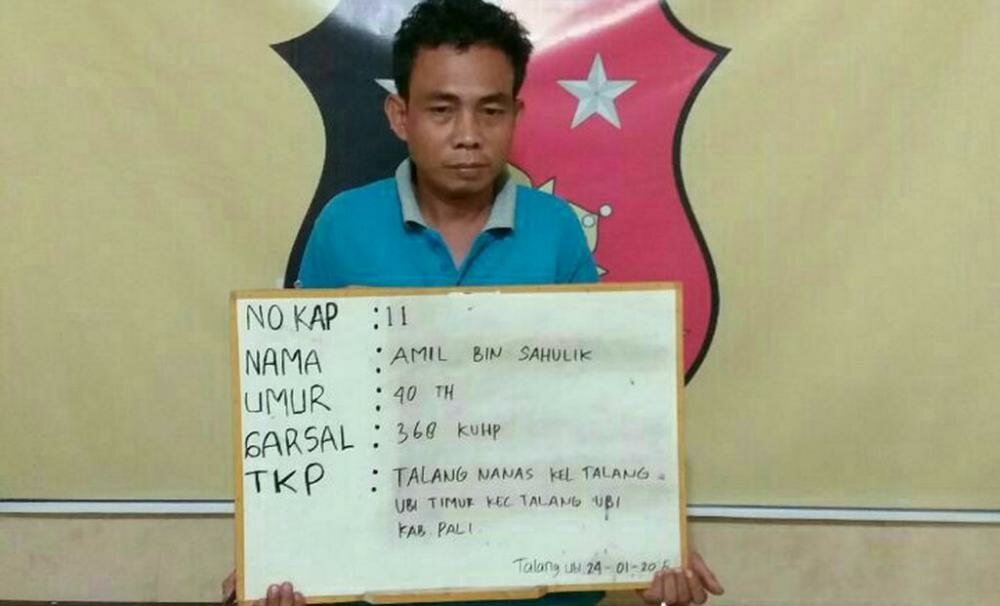 NO KAP : 11
NAMA : AMIL BIN SAHULIK
UMUR : 40 TH
GARSAL : 368 KUHP
TKP : TALANG NANAS KEL TALANG
UBI TIMUR KEC TALANG UBI
KAB. PALI.
Talang Ubi, 24-01-20